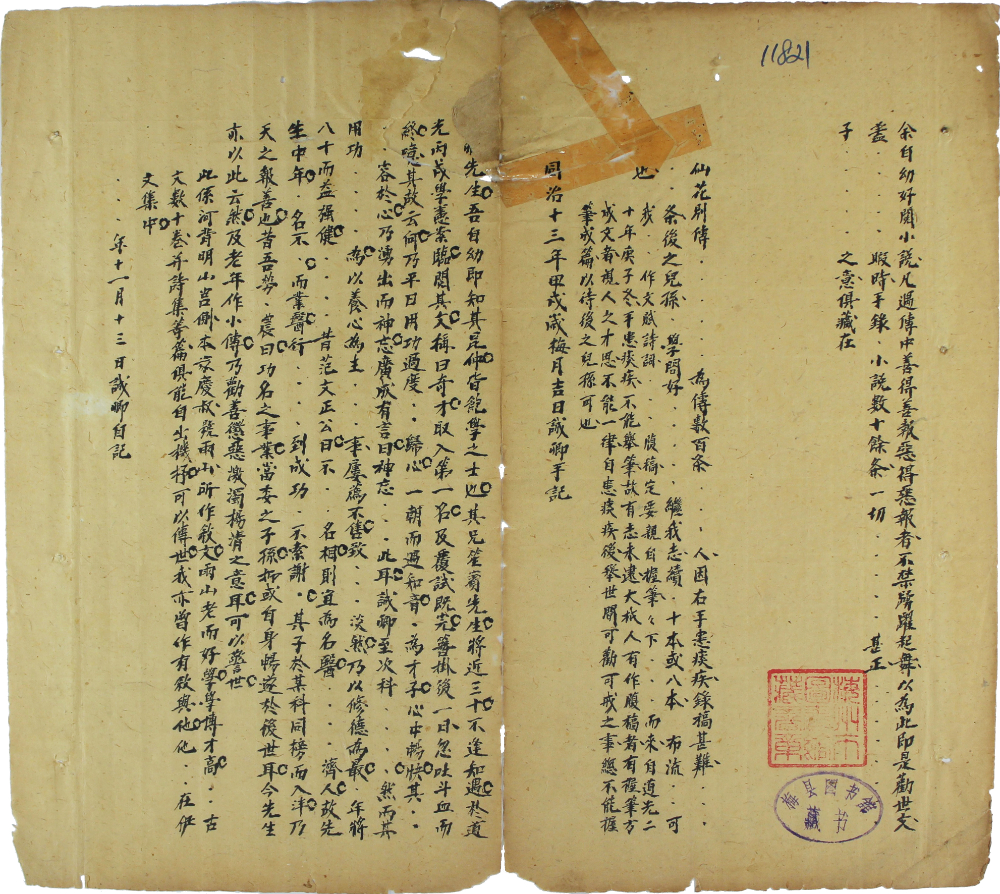 11821
余自幼好閱小說凡過傳中善得善報惡得惡報者不禁勝躍起舞以為此即是勸世文
蓋 . . 暇時手錄 . 小說數十餘条一切 . . . . . 甚正 . . . .
子 . . . . 之意俱藏在
仙花別傳 . . . . . 為傳數百条 . . . 人因右手患痰疾錄稿甚難 .
条後之兒孫 . 學問好 . . . 繼我志續 . 十本或八本 . 布流 . . 可
也
或 . . 作文賦詩詞 . . 腹稿定妥親自握筆々下 . . 而來自道光二
十年庚子冬手患痰疾不能舉筆故有志未逮大抵人有作腹稿者有握筆方
成文者視人之才思不能一律自患痰疾後舉世間可勸可戒之事總不能握
筆成篇以待後之兒孫可也
同治十三年甲戌歲梅月吉日誠卿手記
先生吾自幼即知其昆仲皆飽學之士也其兄笙賓先生將近三十不逢知遇於道
光丙戌學憲案臨閱其文稱曰奇才取入第一名及覆試既完簿掛後一日忽吐斗血而
終噫其故云何乃平日用功過度 . . 歸心一朝而遇知音 . 為才子心中暢快其 . .
容於心乃湧出而神志廣成有言曰神忘 . . . 此耳誠卿至次科 . . . 然而其
用功 . . . . 為以養心為主 . . . 事屢薦不售致 . . 淡然乃以修德為最 . 年將
八十而益强健 . . . . 昔范文正公曰不 . . 名相則宜為名醫 . . . 濟人故先
生中年 . 名不 . 而業醫行 . . . 到成功 . 不索謝 . 其子於某科同榜而入泮乃
天之報善也昔吾夢 . 農曰功名之事業當委之子孫抑或自身暢遂於後世耳今先生
亦以此云然及老年作小傳乃勸善懲惡激濁揚清之意耳可以警世
此係河背明山宫側本宗慶叔號雨山所作敘文雨山老而好學學博才高 . . 古
文數十卷并詩集等篇俱能自出機杼可以傳世我亦嘗作有敘與他他 . . 在伊
文集中
. . . 年十一月十三日誠卿自記
梅州市
圖書館
藏書章
梅县图书館
藏书